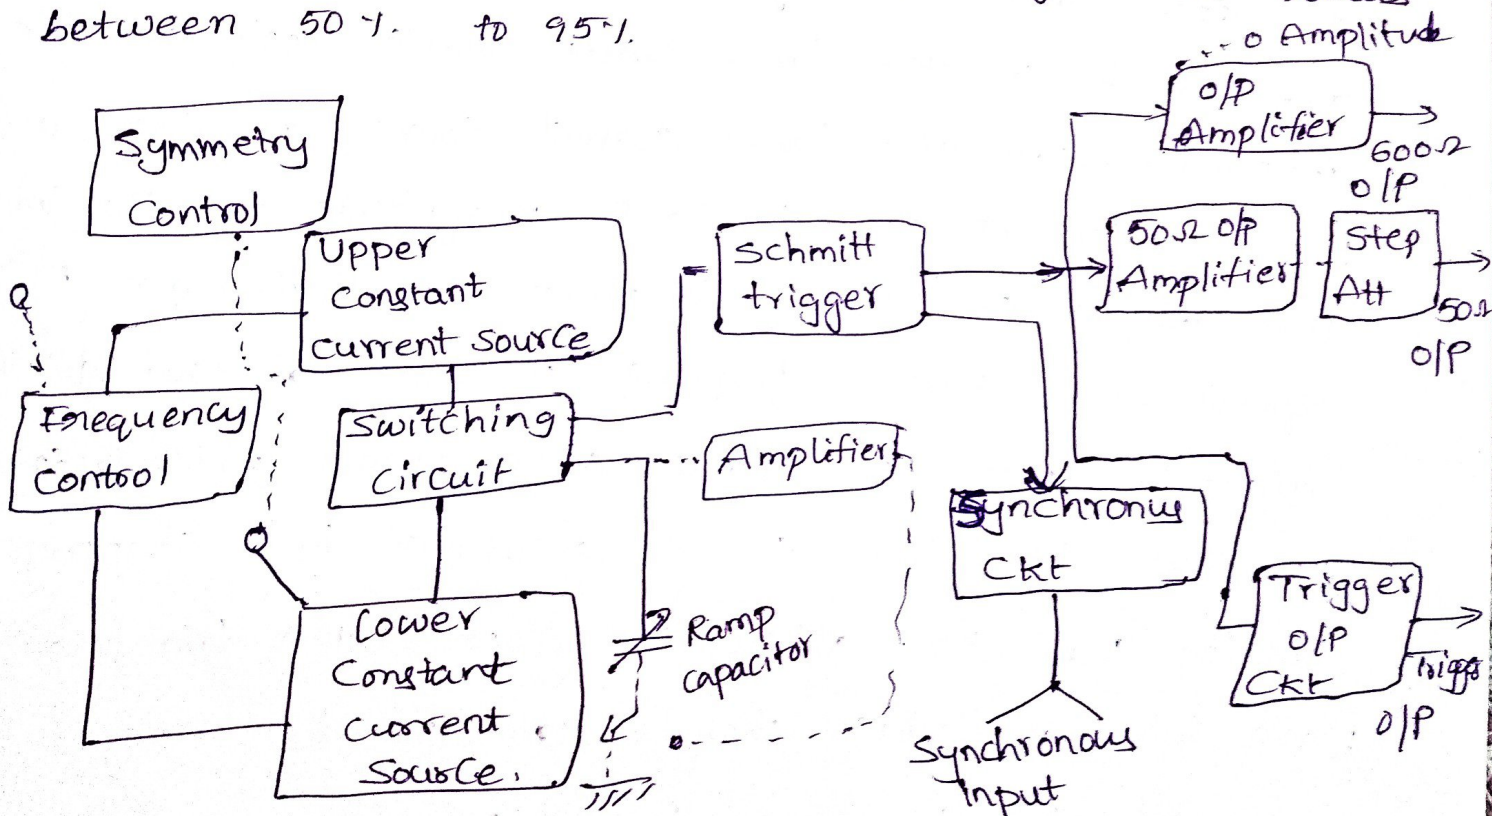 between 50 %. to 95 %.
Amplitude
O/P
Amplifier
600Ω
O/P
Symmetry
Control
Upper
Constant
Current Source
Schmitt
trigger
50Ω O/P
Amplifier
Step
Att
50Ω
O/P
Frequency
Control
Switching
Circuit
Amplifier
Synchronius
Ckt
Lower
Constant
Current
Source.
Ramp
capacitor
Trigger
O/P
Ckt
Trigger
O/P
Synchronous
input